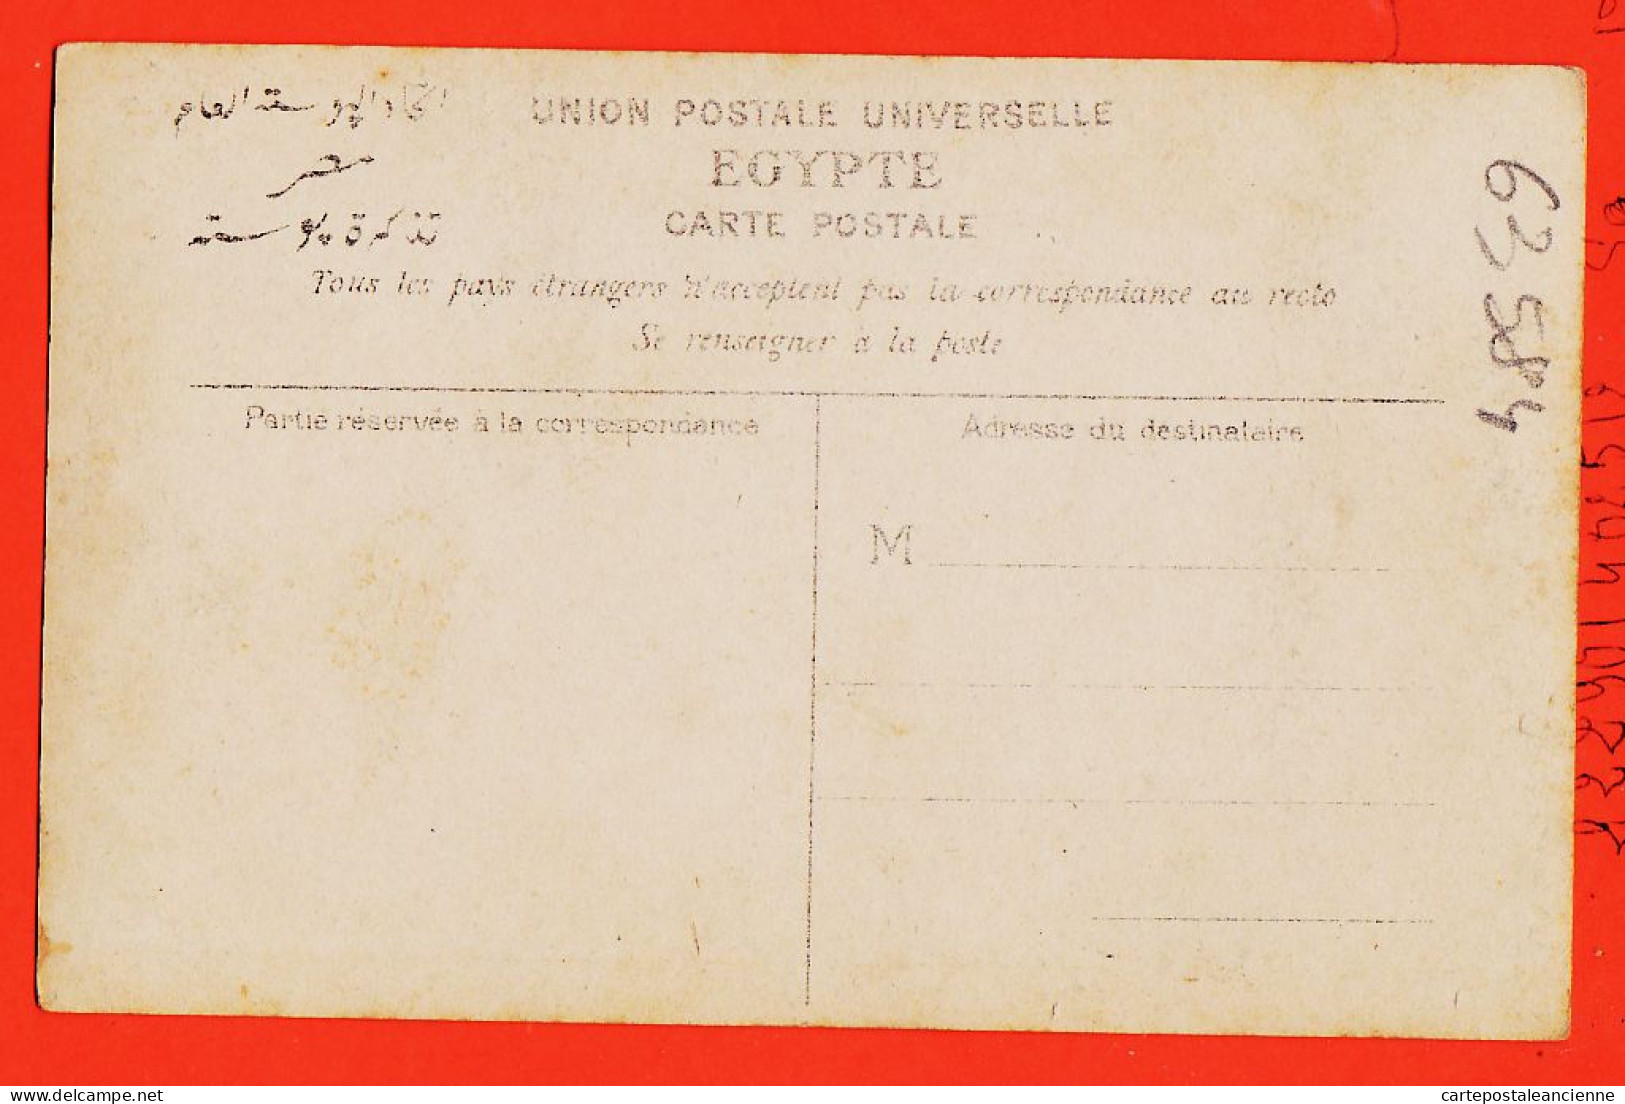 اتحاد البوسته العام
UNION POSTALE UNIVERSELLE
مصر
EGYPTE
تذكرة بوسته
CARTE POSTALE
Tous les pays étrangers n'acceptent pas la correspondance au recto
Se renseigner à la poste
Partie réservée à la correspondance
Adresse du destinataire
M
delcampe.net
cartepostaleancienne